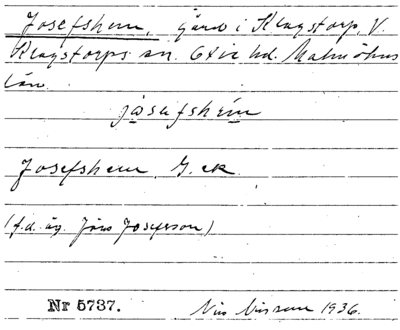 Josefshem, gård i Klagstorp, V.
Klagstorps sn. Oxie hd. Malmöhus
län.
jåsefshem
Josefshem, G. ek.
(f.d. äg. Jöns Josefsson)
Nr 5737. 1936.